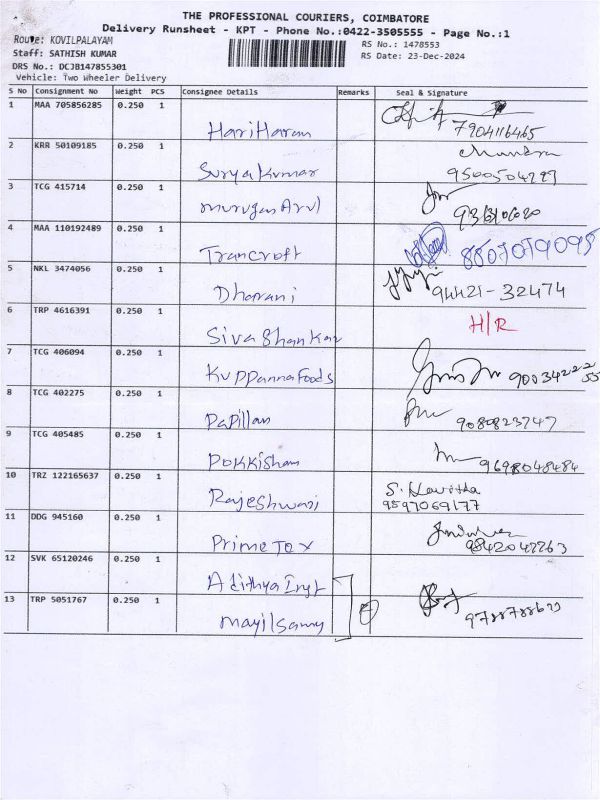 THE PROFESSIONAL COURIERS, COIMBATORE
Delivery Runsheet - KPT - Phone No.:0422-3505555 - Page No.:1
Route: KOVILPALAYAM
RS No.: 1478553
Staff: SATHISH KUMAR
RS Date: 23-Dec-2024
DRS No.: DCJB147855301
Vehicle: Two Wheeler Delivery
S No Consignment No Weight PCS Consignee Details Remarks Seal & Signature
1 MAA 705856285 0.250 1 HariHaran 7904116465
2 KRR 50109185 0.250 1 Suryakumar Chandra
3 TCG 415714 0.250 1 murugan Arul
4 MAA 110192489 0.250 1 Trancroft
5 NKL 3474056 0.250 1 Dharani 94421-32474
6 TRP 4616391 0.250 1 Siva Shankar H/R
7 TCG 406094 0.250 1 KuppannaFoods
8 TCG 402275 0.250 1 Papillan 9080823747
9 TCG 405485 0.250 1 Pokkisham 9698048484
10 TRZ 122165637 0.250 1 Rajeshwari S. Kavitha
9597069177
11 DDG 945160 0.250 1 Prime Tex 9842042263
12 SVK 65120246 0.250 1 Adithya
13 TRP 5051767 0.250 1 mayilsamy